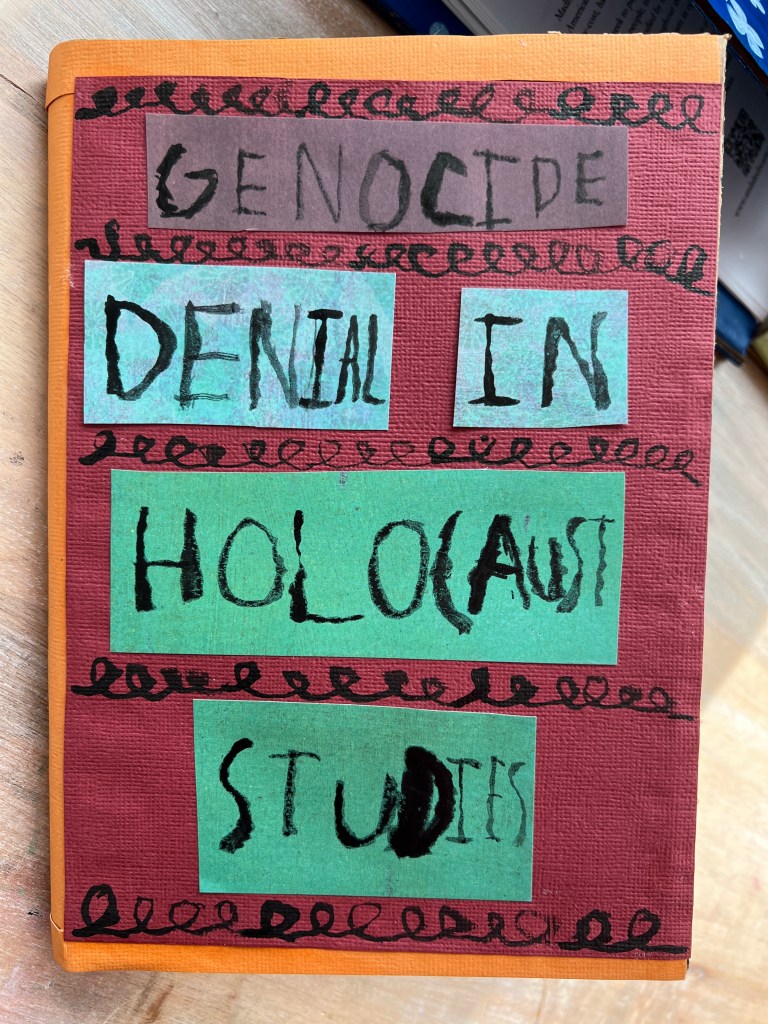 GENOCIDE
DENIAL IN
HOLOCAUST
STUDIES